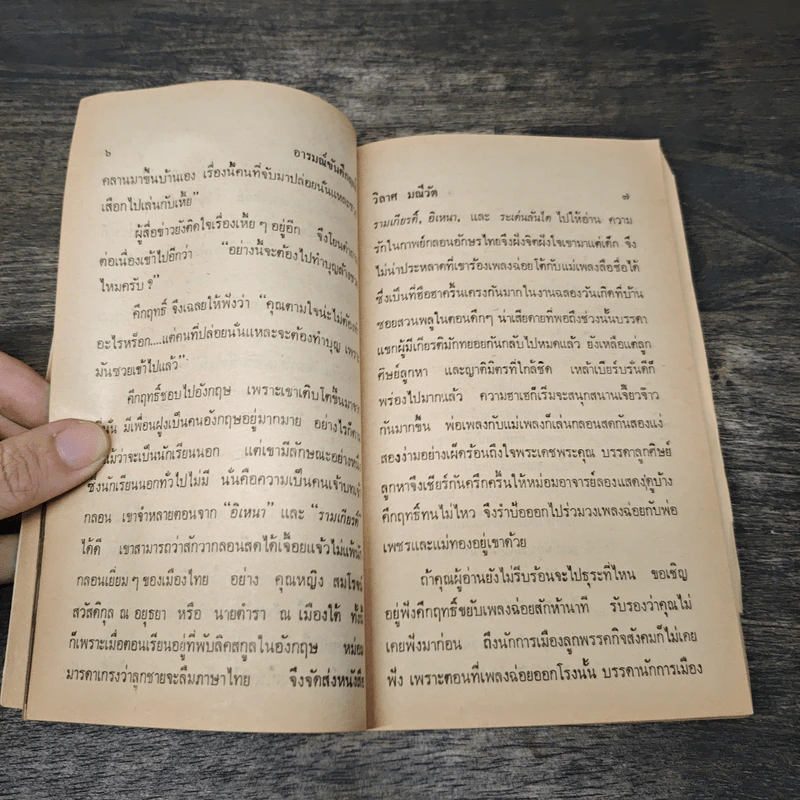 ๖
อารมณ์ขันคึกฤทธิ์
คลานมาขึ้นบ้านเอง เรื่องนี้คนที่จับมาปล่อยนั่นแหละซวย
เสือกไปเล่นกับเหี้ย”
ผู้สื่อข่าวยังติดใจเรื่องเหี้ย ๆ อยู่อีก จึงโยนคำถาม
ต่อเนื่องเข้าไปอีกว่า “อย่างนี้จะต้องไปทำบุญล้างซวย
ไหมครับ ?”
คึกฤทธิ์ จึงเฉลยให้ฟังว่า “คุณตามใจน่ะไม่ต้องทำ
อะไรหรือก....แต่คนที่ปล่อยนั่นแหละจะต้องทำบุญ เพราะ
มันซวยเข้าไปแล้ว”
คึกฤทธิ์ชอบไปอังกฤษ เพราะเขาเติบโตขึ้นมาจาก
ที่นั่น มีเพื่อนฝูงเป็นคนอังกฤษอยู่มากมาย อย่างไรก็ตาม
แม้ว่าจะเป็นนักเรียนนอก แต่เขามีลักษณะอย่างหนึ่ง
ซึ่งนักเรียนนอกทั่วไปไม่มี นั่นคือความเป็นคนเจ้าบทเจ้า
กลอน เขาจำหลายตอนจาก “อิเหนา” และ “รามเกียรติ์”
ได้ดี เขาสามารถว่าสักวากลอนสดได้เจื้อยแจ้วไม่แพ้นัก
กลอนเยี่ยม ๆ ของเมืองไทย อย่าง คุณหญิง สมโรจน์
สวัสดิกุล ณ อยุธยา หรือ นายตำรา ณ เมืองใต้ ทั้งนี้
ก็เพราะเมื่อตอนเรียนอยู่ที่พับลิคสกูลในอังกฤษ หม่อม
มารดาเกรงว่าลูกชายจะลืมภาษาไทย จึงจัดส่งหนังสือ
วิลาศ มณีวัต
๗
รามเกียรติ์, อิเหนา, และ ระเด่นลันได ไปให้อ่าน ความ
รักในกาพย์กลอนอักษรไทยจึงฝังจิตฝังใจเขามาแต่เด็ก จึง
ไม่น่าประหลาดที่เขาร้องเพลงฉ่อยโต้กับแม่เพลงลือชื่อได้
ซึ่งเป็นที่ฮือฮาครื้นเครงกันมากในงานฉลองวันเกิดที่บ้าน
ซอยสวนพลูในตอนดึกๆ น่าเสียดายที่พอถึงช่วงนั้นบรรดา
แขกผู้มีเกียรติมักทยอยกันกลับไปหมดแล้ว ยังเหลือแต่ลูก
ศิษย์ลูกหา และญาติมิตรที่ใกล้ชิด เหล้าเบียร์บรั่นดีก็
พร่องไปมากแล้ว ความฮาเฮก็เริ่มจะสนุกสนานเจี๊ยวจ๊าว
กันมากขึ้น พ่อเพลงกับแม่เพลงก็เล่นกลอนสดกันสองแง่
สองง่ามอย่างเผ็ดร้อนถึงใจพระเดชพระคุณ บรรดาลูกศิษย์
ลูกหาจึงเชียร์กันครึกครื้นให้หม่อมอาจารย์ลองแสดงดูบ้าง
คึกฤทธิ์ทนไม่ไหว จึงรำป้อออกไปร่วมวงเพลงฉ่อยกับพ่อ
เพชรและแม่ทองอยู่เขาด้วย
ถ้าคุณผู้อ่านยังไม่รีบร้อนจะไปธุระที่ไหน ขอเชิญ
อยู่ฟังคึกฤทธิ์ขยับเพลงฉ่อยสักห้านาที รับรองว่าคุณไม่
เคยฟังมาก่อน ถึงนักการเมืองลูกพรรคกิจสังคมก็ไม่เคย
ฟัง เพราะตอนที่เพลงฉ่อยออกโรงนั้น บรรดานักการเมือง